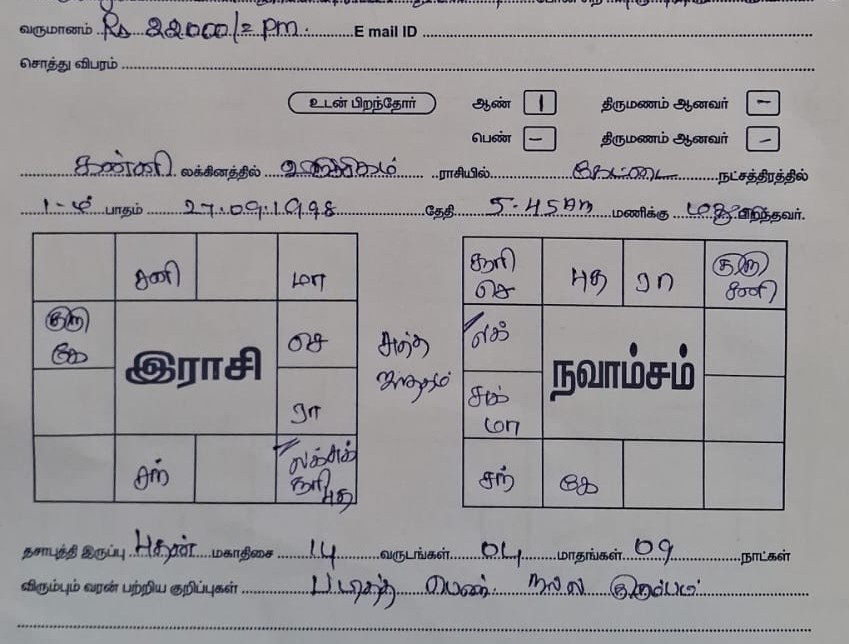 வருமானம் Rs 22000/= pm. E mail ID
சொத்து விபரம்
உடன் பிறந்தோர் ஆண் 1 திருமணம் ஆனவர் -
பெண் - திருமணம் ஆனவர் -
கன்னி லக்கினத்தில் விருச்சிகம் ராசியில் கேட்டை நட்சத்திரத்தில்
1-ம் பாதம் 27.09.1998 தேதி 5.45 Am மணிக்கு பிறந்தவர்.
சனி மா
குரு
கே
செ
ரா
சந்
லக் சுக்
சூரி புத
இராசி
சுத்த
ஜாதகம்
சூரி
செ
புத ரா குரு
சனி
லக்
சுக்
மா
சந் கே
நவாம்சம்
தசாபுத்தி இருப்பு புதன் மகாதிசை 14 வருடங்கள் 04 மாதங்கள் 09 நாட்கள்
விரும்பும் வரன் பற்றிய குறிப்புகள் படித்த பெண். நல்ல குடும்பம்